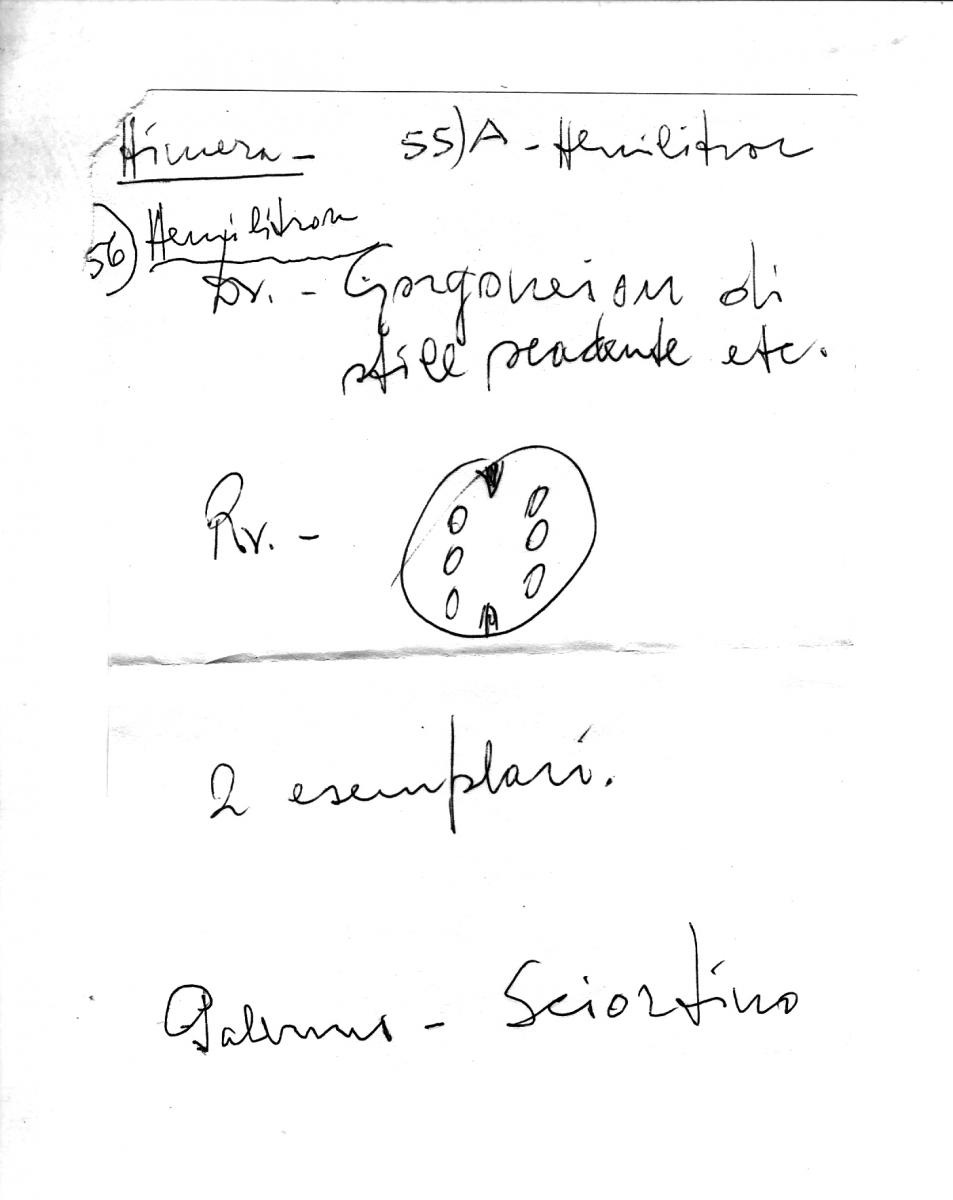 Himera - 55)A - Hemilitron
56) Hemilitron
Dr. - Gorgoneion di
stile scadente etc.
Rv. -
2 esemplari.
Palermo - Sciortino